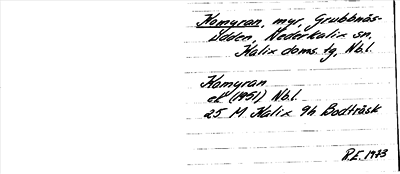 Komyran, myr, Grubbnäs-
udden, Nederkalix sn,
Kalix doms. tg, Nb.l.
Komyran
ek (1951) Nb.l.
25 M Kalix 9h Bodträsk
R.E. 1973